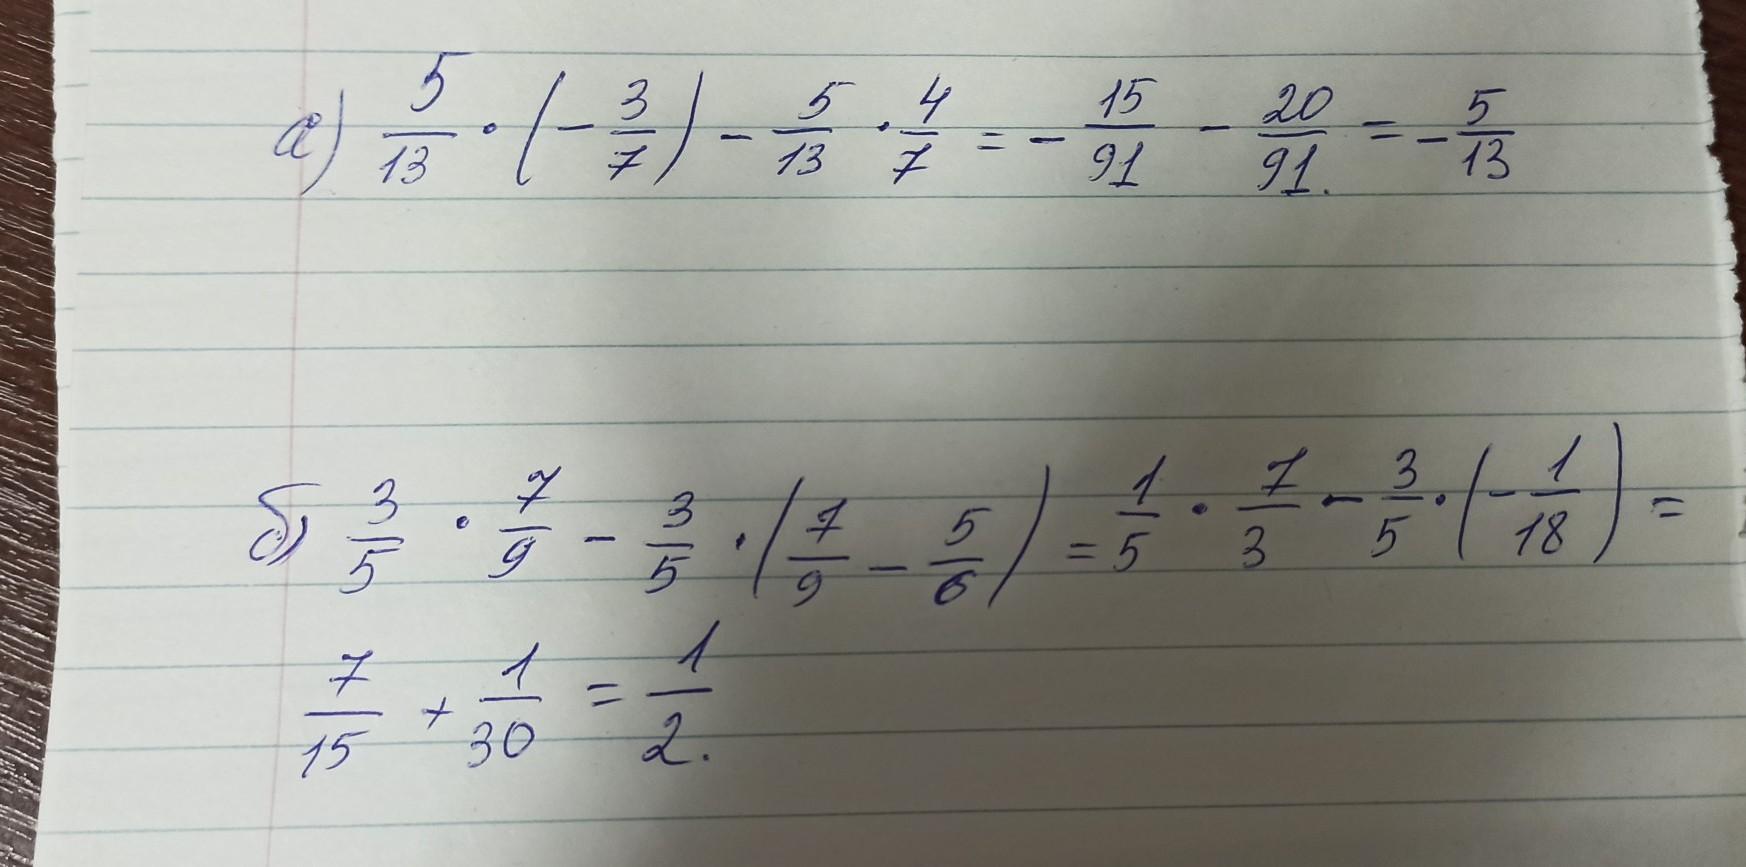 а) 5/13 · (-3/7) - 5/13 · 4/7 = -15/91 - 20/91. = -5/13
б) 3/5 · 7/9 - 3/5 · (7/9 - 5/6) = 1/5 · 7/3 - 3/5 · (-1/18) =
7/15 + 1/30 = 1/2.